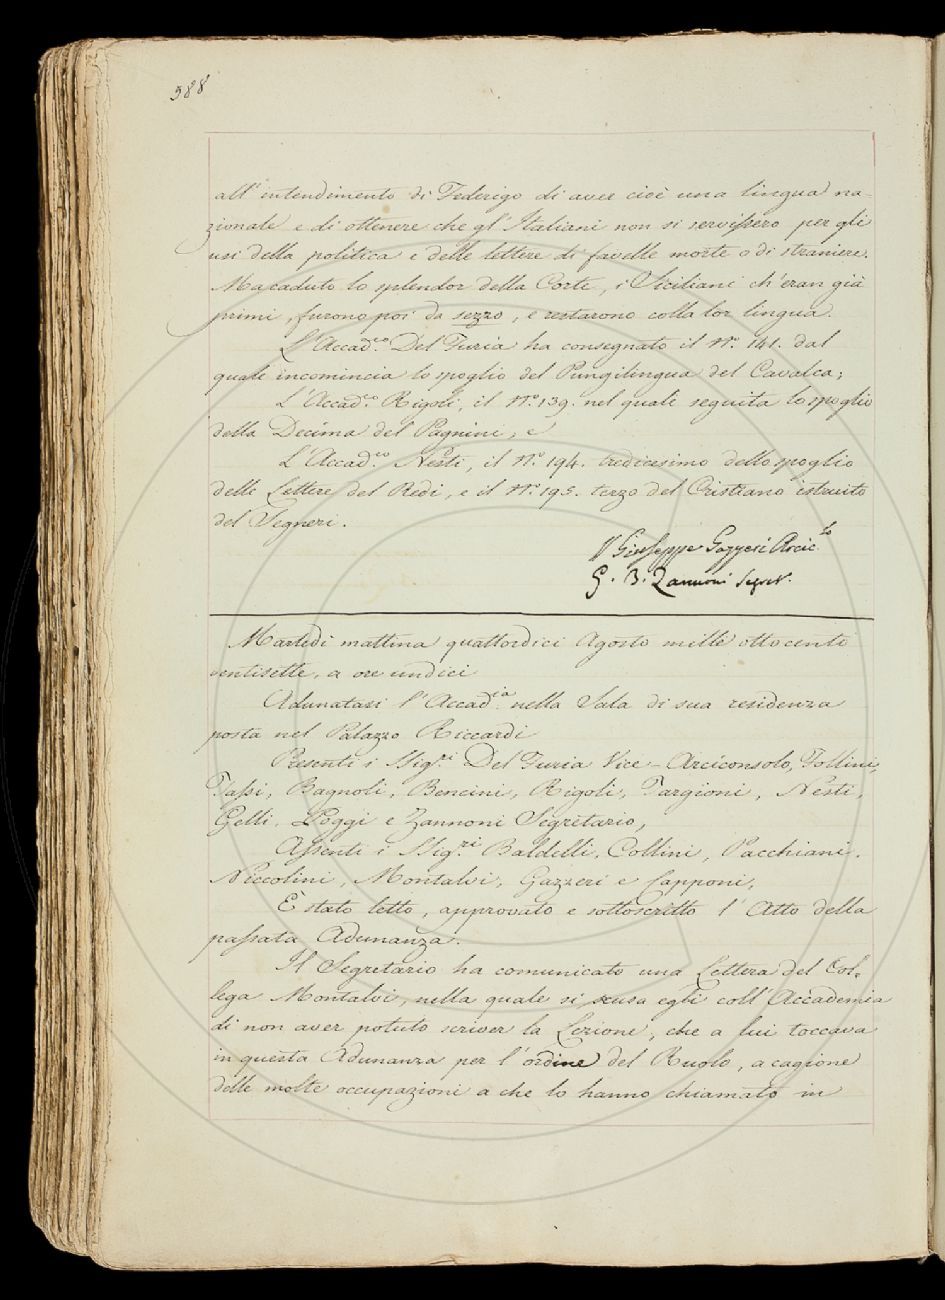 388
all' intendimento di Federigo di aver cioè una lingua na-
zionale e di ottenere che gl' Italiani non si servissero per gli
usi della politica e delle lettere di favelle morte o di straniere.
Ma caduto lo splendor della Corte, i Siciliani ch' eran già
primi, furono poi da sezzo, e restarono colla lor lingua.
L' Accad.co Del Furia ha consegnato il N.o 141. dal
quale incomincia lo spoglio del Pungilingua del Cavalca;
L' Accad.co Rigoli, il N.o 139. nel quale seguita lo spoglio
della Decima del Pagnini; e
L' Accad.co Nesti, il N.o 194. tredicesimo dello spoglio
delle Lettere del Redi, e il N.o 195. terzo del Cristiano istruito
del Segneri.
V Giuseppe Gazzeri Arcic.lo
G. B. Zannoni Segret.
Martedì mattina quattordici Agosto mille ottocento
ventisette, a ore undici
Adunatasi l' Accad.ia nella Sala di sua residenza
posta nel Palazzo Riccardi
Presenti i Sig.ri Del Furia Vice-Arciconsolo, Follini,
Tassi, Bagnoli, Bencini, Rigoli, Targioni, Nesti,
Gelli, Poggi e Zannoni Segretario,
Assenti i Sig.ri Baldelli, Collini, Pacchiani,
Niccolini, Montalvi, Gazzeri e Capponi,
È stato letto, approvato e sottoscritto l' Atto della
passata Adunanza.
Il Segretario ha comunicato una Lettera del Col-
lega Montalvi, nella quale si scusa egli coll' Accademia
di non aver potuto scriver la Lezione, che a lui toccava
in questa Adunanza per l' ordine del Ruolo, a cagione
delle molte occupazioni a che lo hanno chiamato in